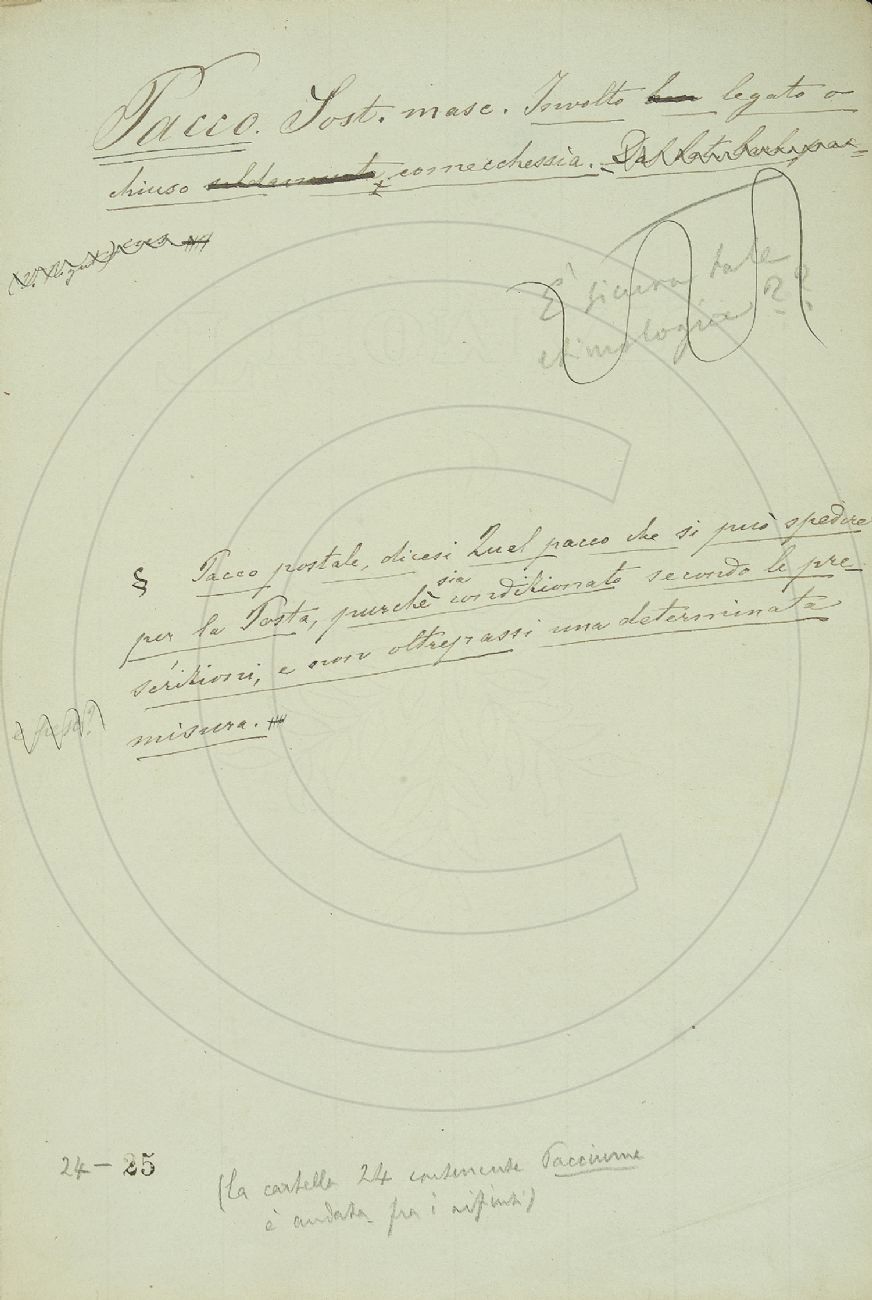 Pacco. Sost. masc. Involto ben legato o
chiuso saldamente comecchessia. Dal lat. barb. pac-
cus.
È sicura tale
etimologia??
§ Pacco postale, dicesi Quel pacco che si può spedire
per la Posta, purchè sia condizionato secondo le pre-
scrizioni, e non oltrepassi una determinata
e peso?
misura.
24-25
(la cartella 24 contenente Pacciume
è andata fra i rifiuti)